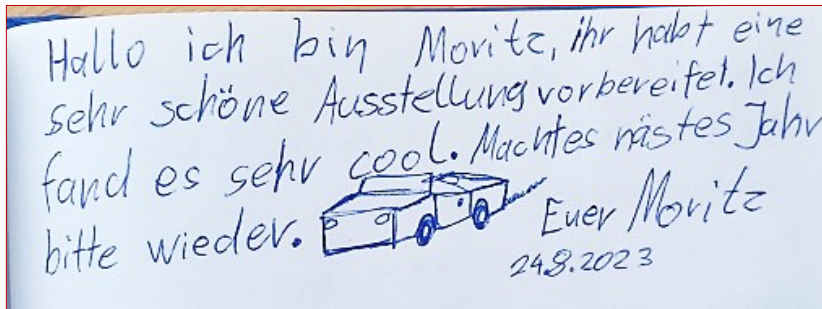 Hallo ich bin Moritz, ihr habt eine
sehr schöne Ausstellung vorbereitet. Ich
fand es sehr cool. Macht es nästes Jahr
bitte wieder.
Euer Moritz
24.8.2023